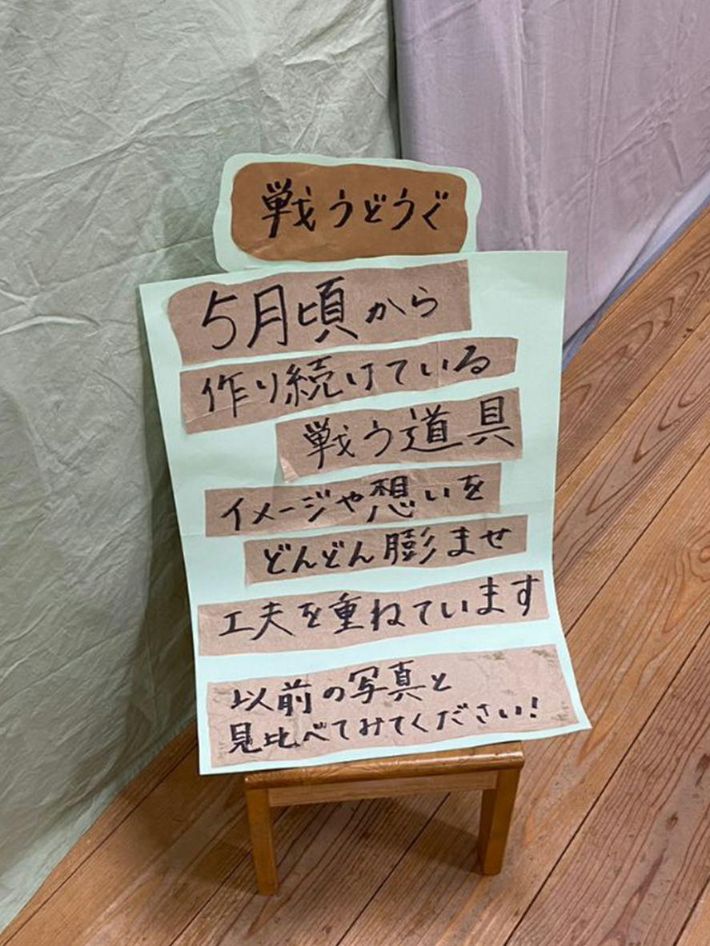 戦うどうぐ
5月頃から
作り続けている
戦う道具
イメージや想いを
どんどん膨ませ
工夫を重ねています
以前の写真と
見比べてみてください!